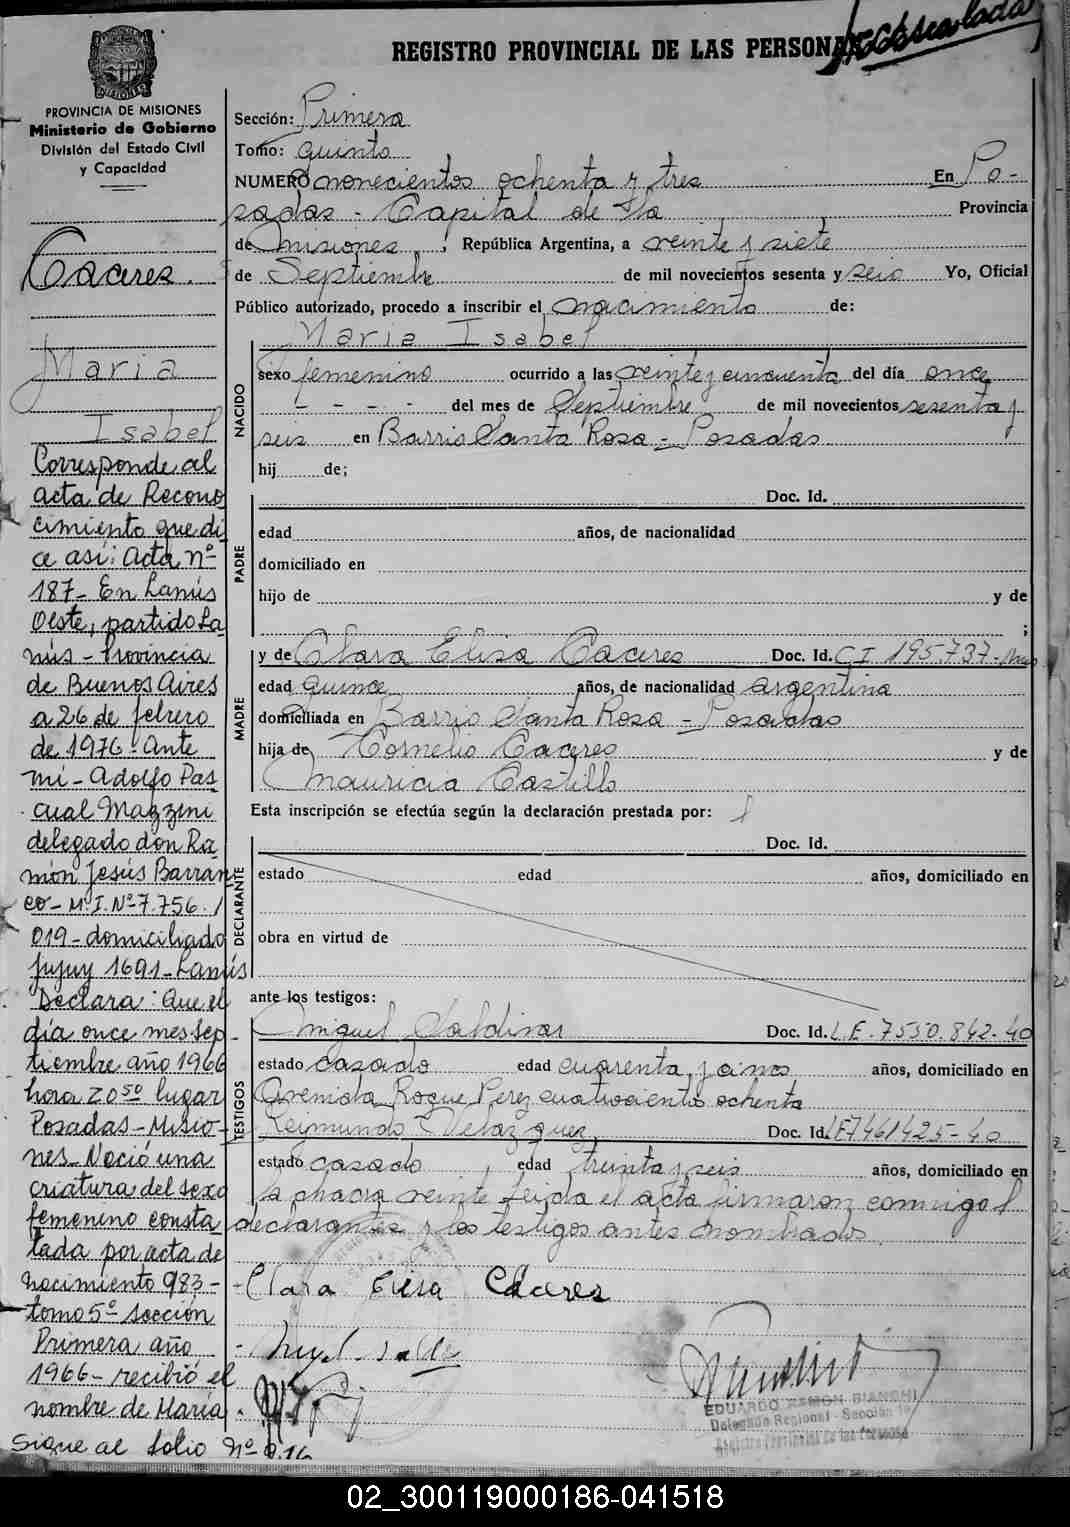 REGISTRO PROVINCIAL DE LAS PERSONAS
PROVINCIA DE MISIONES
Ministerio de Gobierno
División del Estado Civil
y Capacidad
Caceres.
Maria
Isabel
Corresponde al
acta de Recono
cimiento que di
ce así: Acta nº
187- En Lanús
Oeste, partido La
nús - Provincia
de Buenos Aires
a 26 de febrero
de 1976 - Ante
mi - Adolfo Pas
cual Mazzini
delegado don Ra
món Jesús Barran
co - M.I. Nº 7.756.
019 - domiciliado
Jujuy 1691 - Lanús
Declara: Que el
día once mes sep
tiembre año 1966
hora 20 50 lugar
Posadas - Misio-
nes - Nació una
criatura del sexo
femenino consta
tada por acta de
nacimiento 983 -
tomo 5º sección
Primera año
1966 - recibió el
nombre de María
Sigue al folio Nº
Sección: Primera
Tomo: quinto
NUMERO novecientos ochenta y tres En Po-
sadas - Capital de la Provincia
de Misiones, República Argentina, a veinte y siete
de Septiembre de mil novecientos sesenta y seis Yo, Oficial
Público autorizado, procedo a inscribir el nacimiento de:
Maria Isabel
NACIDO
sexo femenino ocurrido a las veinte y cincuenta del día once
- - - - del mes de Septiembre de mil novecientos sesenta y
seis en Barrio Santa Rosa - Posadas
hij de;
PADRE
Doc. Id.
edad años, de nacionalidad
domiciliado en
hijo de y de
;
MADRE
y de Clara Elisa Caceres Doc. Id. C I 195.737-
edad quince años, de nacionalidad argentina
domiciliada en Barrio Santa Rosa - Posadas
hija de Cornelio Caceres y de
Mauricia Castillo
Esta inscripción se efectúa según la declaración prestada por:
DECLARANTE
Doc. Id.
estado edad años, domiciliado en
obra en virtud de
ante los testigos:
TESTIGOS
Miguel Saldivar Doc. Id. L.E. 7550.842-40
estado casado edad cuarenta y años, domiciliado en
Avenida Roque Perez cuatrocientos ochenta
Reymundo Velazquez Doc. Id. LE7461425-40
estado casado edad treinta y seis años, domiciliado en
la chacra veinte leida el acta firmaron conmigo
declarantes y los testigos antes nombrados.
Clara Elisa Cáceres
EDUARDO RAMON BIANCHI
Delegado Regional - Sección 1ª
Registro Provincial de las Personas
02_300119000186-041518